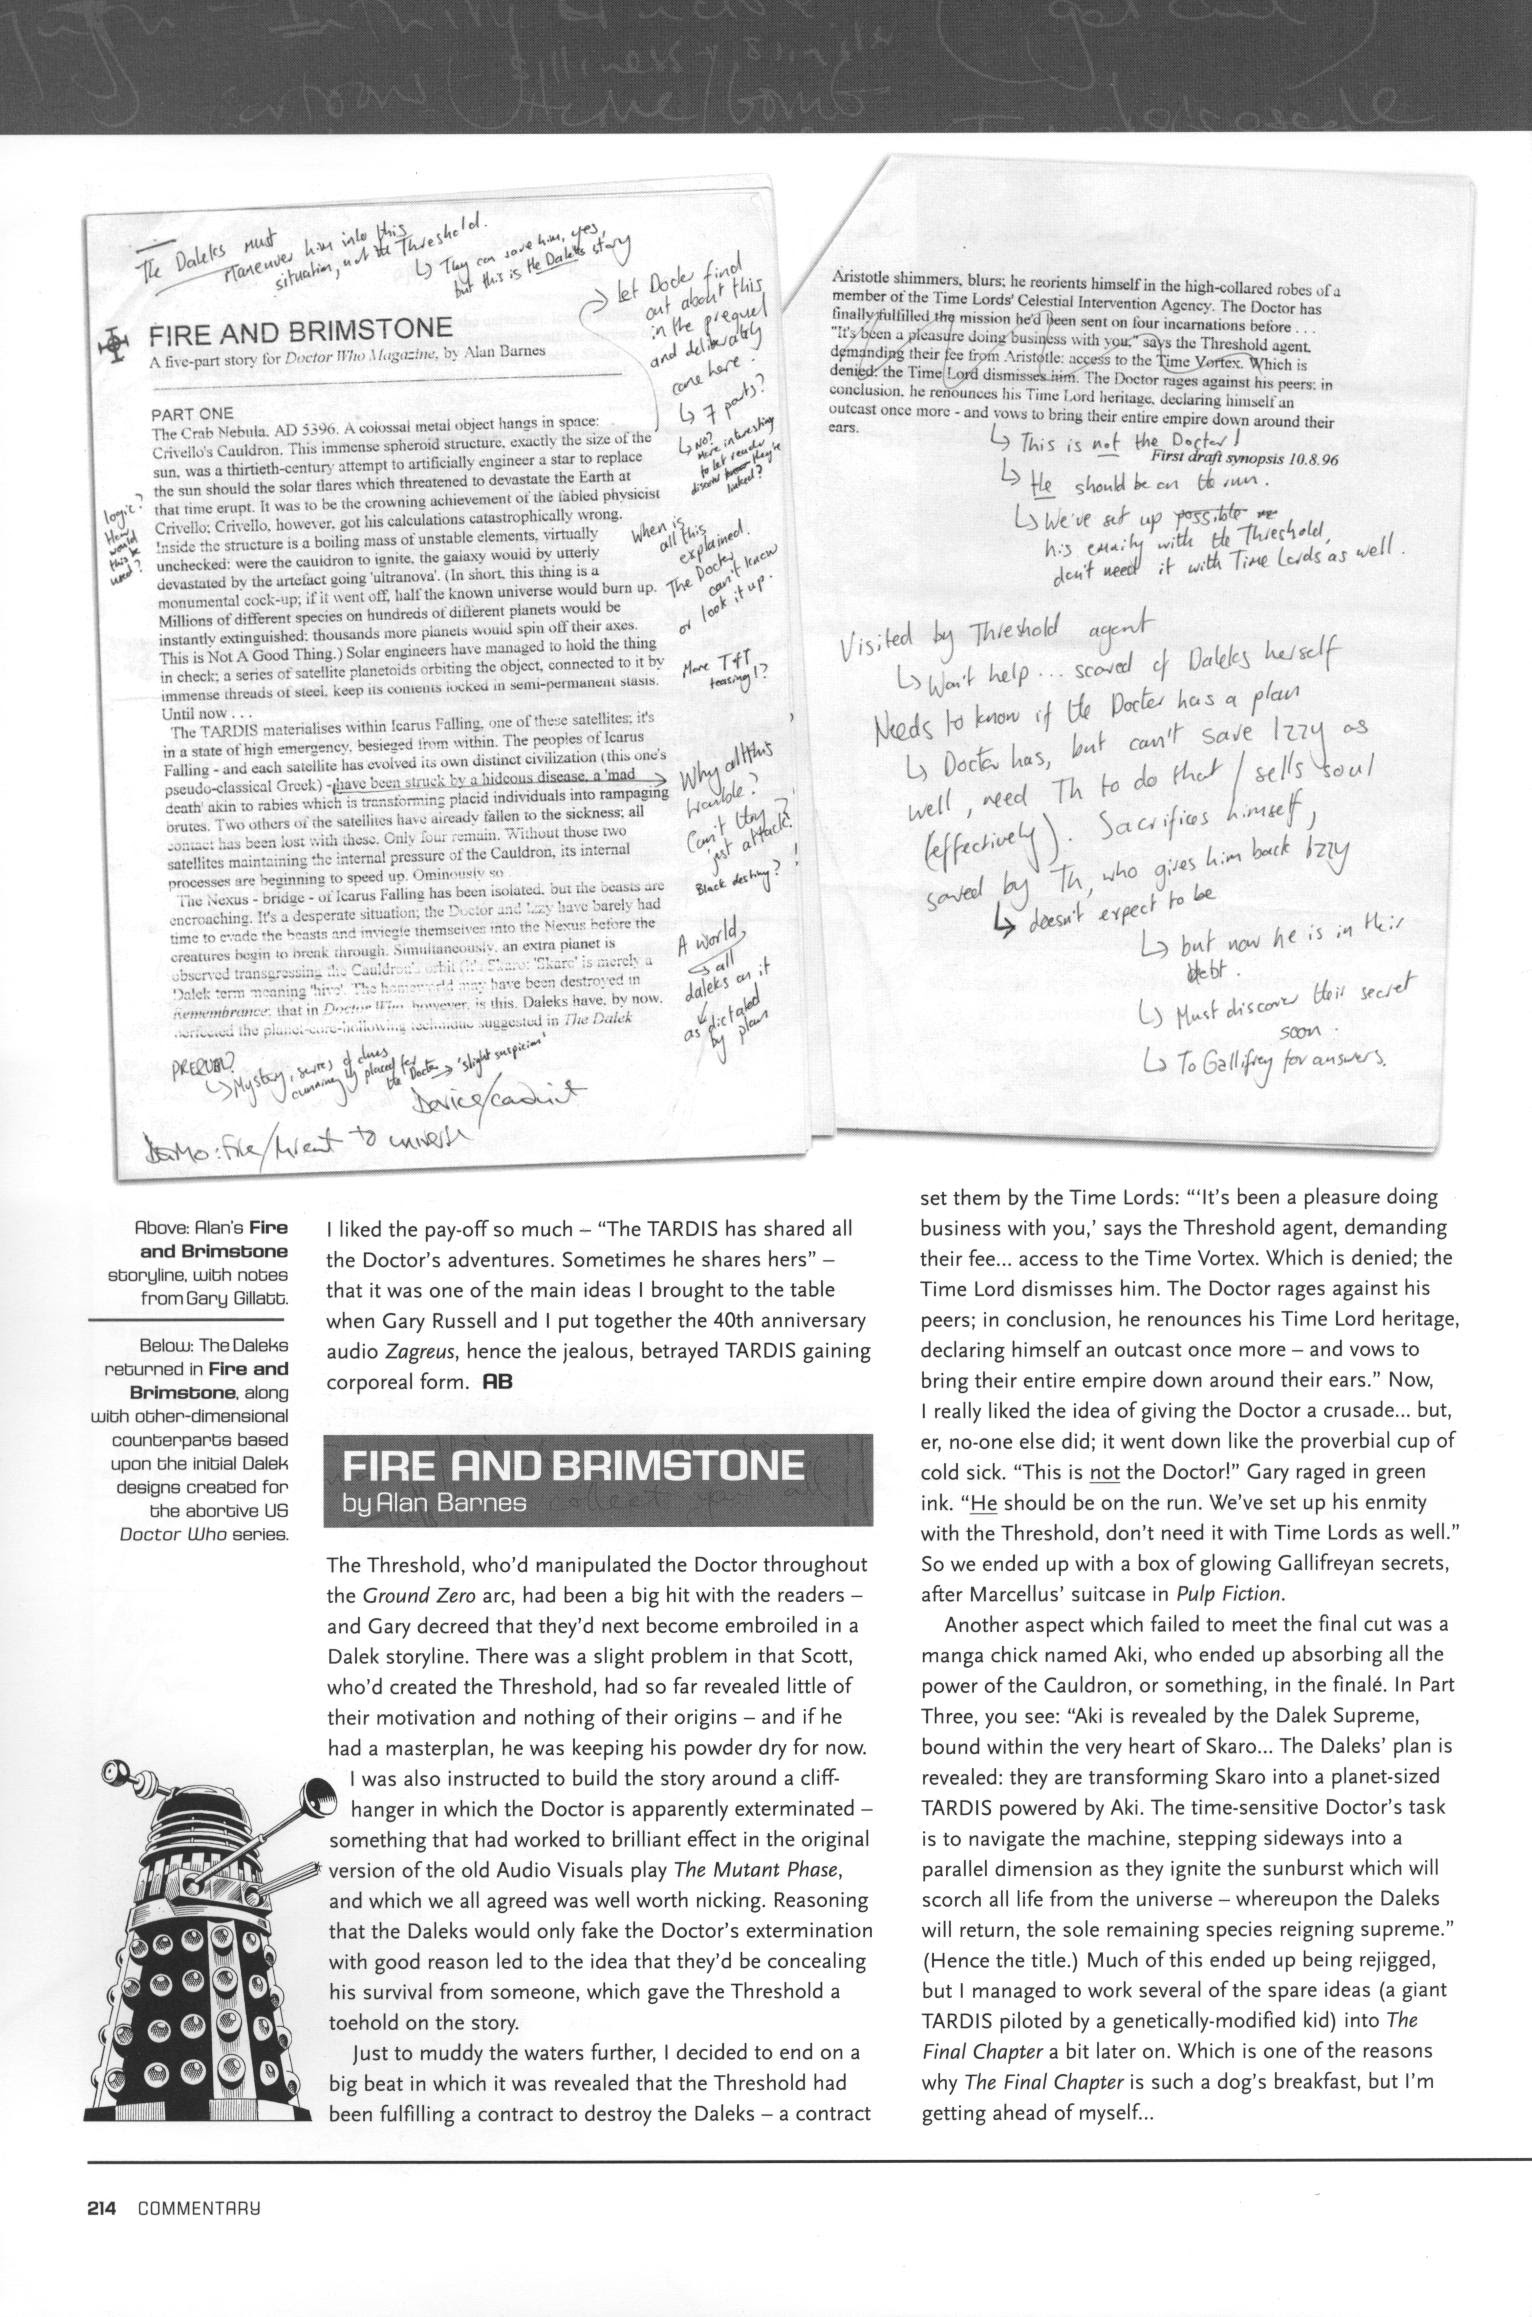 The Daleks must
Maneuver him into this
situation, not the Threshold.
↳ They can save him, yes,
but this is the Daleks story
→ Let Docter find
out about this
in the prequel
and deliberately
come here.
↳ 7 parts?
↳ No?
More interesting
to let reader
discover they're
linked?
FIRE AND BRIMSTONE
A five-part story for Doctor Who Magazine, by Alan Barnes
PART ONE
The Crab Nebula. AD 5396. A colossal metal object hangs in space:
Crivello's Cauldron. This immense spheroid structure, exactly the size of the
sun, was a thirtieth-century attempt to artificially engineer a star to replace
the sun should the solar flares which threatened to devastate the Earth at
that time erupt. It was to be the crowning achievement of the fabled physicist
Crivello; Crivello, however, got his calculations catastrophically wrong.
Inside the structure is a boiling mass of unstable elements, virtually
unchecked: were the cauldron to ignite, the galaxy would by utterly
devastated by the artefact going 'ultranova'. (In short, this thing is a
monumental cock-up; if it went off, half the known universe would burn up.
Millions of different species on hundreds of different planets would be
instantly extinguished; thousands more planets would spin off their axes.
This is Not A Good Thing.) Solar engineers have managed to hold the thing
in check; a series of satellite planetoids orbiting the object, connected to it by
immense threads of steel, keep its contents locked in semi-permanent stasis.
Until now . . .
The TARDIS materialises within Icarus Falling, one of these satellites; it's
in a state of high emergency, besieged from within. The peoples of Icarus
Falling - and each satellite has evolved its own distinct civilization (this one's
pseudo-classical Greek) - have been struck by a hideous disease, a 'mad
death' akin to rabies which is transforming placid individuals into rampaging
brutes. Two others of the satellites have already fallen to the sickness; all
contact has been lost with these. Only four remain. Without those two
satellites maintaining the internal pressure of the Cauldron, its internal
processes are beginning to speed up. Ominously so
The Nexus - bridge - of Icarus Falling has been isolated, but the beasts are
encroaching. It's a desperate situation; the Doctor and Izzy have barely had
time to evade the beasts and inviegle themselves into the Nexus before the
creatures begin to break through. Simultaneously, an extra planet is
observed transgressing the Cauldron's orbit (it's Skaro: 'Skaro' is merely a
Dalek term meaning 'hive'. The homeworld may have been destroyed in
Remembrance; that in Doctor Who, however, is this. Daleks have, by now,
perfected the planet-core-hollowing technique suggested in The Dalek
logic?
How
would
this be
used?
When is
all this
explained.
The Doctor
can't know
or look it up.
More T&T
teasing!?
Why all this
trouble?
Can't they
just attack?!
Black destiny?
A world,
→ all
daleks on it
↙
as dictated
by plan
PREQUEL?
↳ Mystery, series of clues
cunningly placed for
the Docter → 'slight suspicion'
Device/conduit
to universe
Aristotle shimmers, blurs; he reorients himself in the high-collared robes of a
member of the Time Lords' Celestial Intervention Agency. The Doctor has
finally fulfilled the mission he'd been sent on four incarnations before . . .
"It's been a pleasure doing business with you," says the Threshold agent,
demanding their fee from Aristotle: access to the Time Vortex. Which is
denied; the Time Lord dismisses him. The Doctor rages against his peers; in
conclusion, he renounces his Time Lord heritage, declaring himself an
outcast once more - and vows to bring their entire empire down around their
ears.
↳ This is not the Docter!
First draft synopsis 10.8.96
↳ He should be on the run.
↳ We've set up possible
his enmity with the Threshold,
don't need it with Time Lords as well.
Visited by Threshold agent
↳ Won't help... scared of Daleks herself
Needs to know if the Docter has a plan
↳ Docter has, but can't save Izzy as
well, need Th to do that / sells soul
(effectively). Sacrifices himself,
saved by Th, who gives him back Izzy
↳ doesn't expect to be
↳ but now he is in their
debt.
↳ Must discover their secret
soon.
↳ To Gallifrey for answers.
Above: Alan's Fire
and Brimstone
storyline, with notes
from Gary Gillatt.
Below: The Daleks
returned in Fire and
Brimstone, along
with other-dimensional
counterparts based
upon the initial Dalek
designs created for
the abortive US
Doctor Who series.
I liked the pay-off so much – “The TARDIS has shared all
the Doctor's adventures. Sometimes he shares hers” –
that it was one of the main ideas I brought to the table
when Gary Russell and I put together the 40th anniversary
audio Zagreus, hence the jealous, betrayed TARDIS gaining
corporeal form. AB
FIRE AND BRIMSTONE
by Alan Barnes
The Threshold, who'd manipulated the Doctor throughout
the Ground Zero arc, had been a big hit with the readers –
and Gary decreed that they'd next become embroiled in a
Dalek storyline. There was a slight problem in that Scott,
who'd created the Threshold, had so far revealed little of
their motivation and nothing of their origins – and if he
had a masterplan, he was keeping his powder dry for now.
I was also instructed to build the story around a cliff-
hanger in which the Doctor is apparently exterminated –
something that had worked to brilliant effect in the original
version of the old Audio Visuals play The Mutant Phase,
and which we all agreed was well worth nicking. Reasoning
that the Daleks would only fake the Doctor's extermination
with good reason led to the idea that they'd be concealing
his survival from someone, which gave the Threshold a
toehold on the story.
Just to muddy the waters further, I decided to end on a
big beat in which it was revealed that the Threshold had
been fulfilling a contract to destroy the Daleks – a contract
set them by the Time Lords: “‘It's been a pleasure doing
business with you,’ says the Threshold agent, demanding
their fee... access to the Time Vortex. Which is denied; the
Time Lord dismisses him. The Doctor rages against his
peers; in conclusion, he renounces his Time Lord heritage,
declaring himself an outcast once more – and vows to
bring their entire empire down around their ears.” Now,
I really liked the idea of giving the Doctor a crusade... but,
er, no-one else did; it went down like the proverbial cup of
cold sick. “This is not the Doctor!” Gary raged in green
ink. “He should be on the run. We've set up his enmity
with the Threshold, don't need it with Time Lords as well.”
So we ended up with a box of glowing Gallifreyan secrets,
after Marcellus' suitcase in Pulp Fiction.
Another aspect which failed to meet the final cut was a
manga chick named Aki, who ended up absorbing all the
power of the Cauldron, or something, in the finalé. In Part
Three, you see: “Aki is revealed by the Dalek Supreme,
bound within the very heart of Skaro... The Daleks' plan is
revealed: they are transforming Skaro into a planet-sized
TARDIS powered by Aki. The time-sensitive Doctor's task
is to navigate the machine, stepping sideways into a
parallel dimension as they ignite the sunburst which will
scorch all life from the universe – whereupon the Daleks
will return, the sole remaining species reigning supreme.”
(Hence the title.) Much of this ended up being rejigged,
but I managed to work several of the spare ideas (a giant
TARDIS piloted by a genetically-modified kid) into The
Final Chapter a bit later on. Which is one of the reasons
why The Final Chapter is such a dog's breakfast, but I'm
getting ahead of myself...
214 COMMENTARY